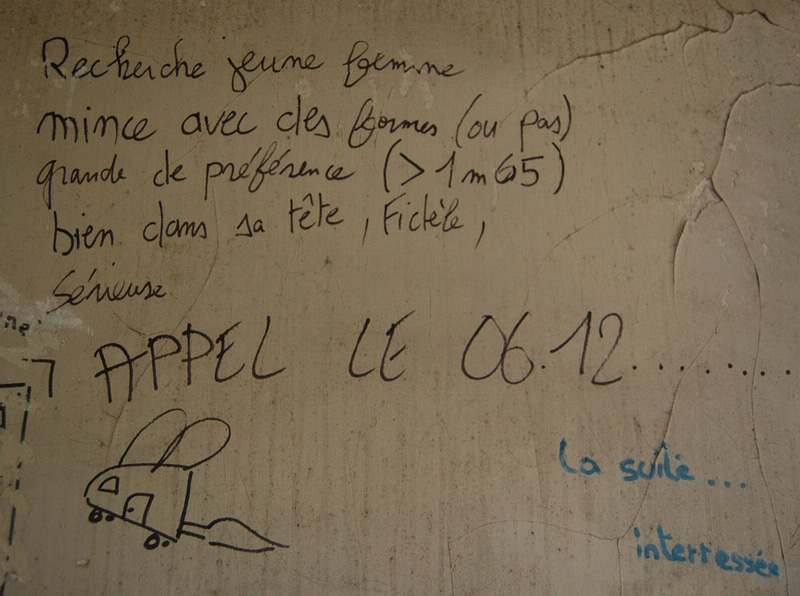 Recherche jeune femme
mince avec des formes (ou pas)
grande de préférence (>1m65)
bien dans sa tête, Fidèle,
Sérieuse
APPEL LE 06.12.........
La suite...
interressée